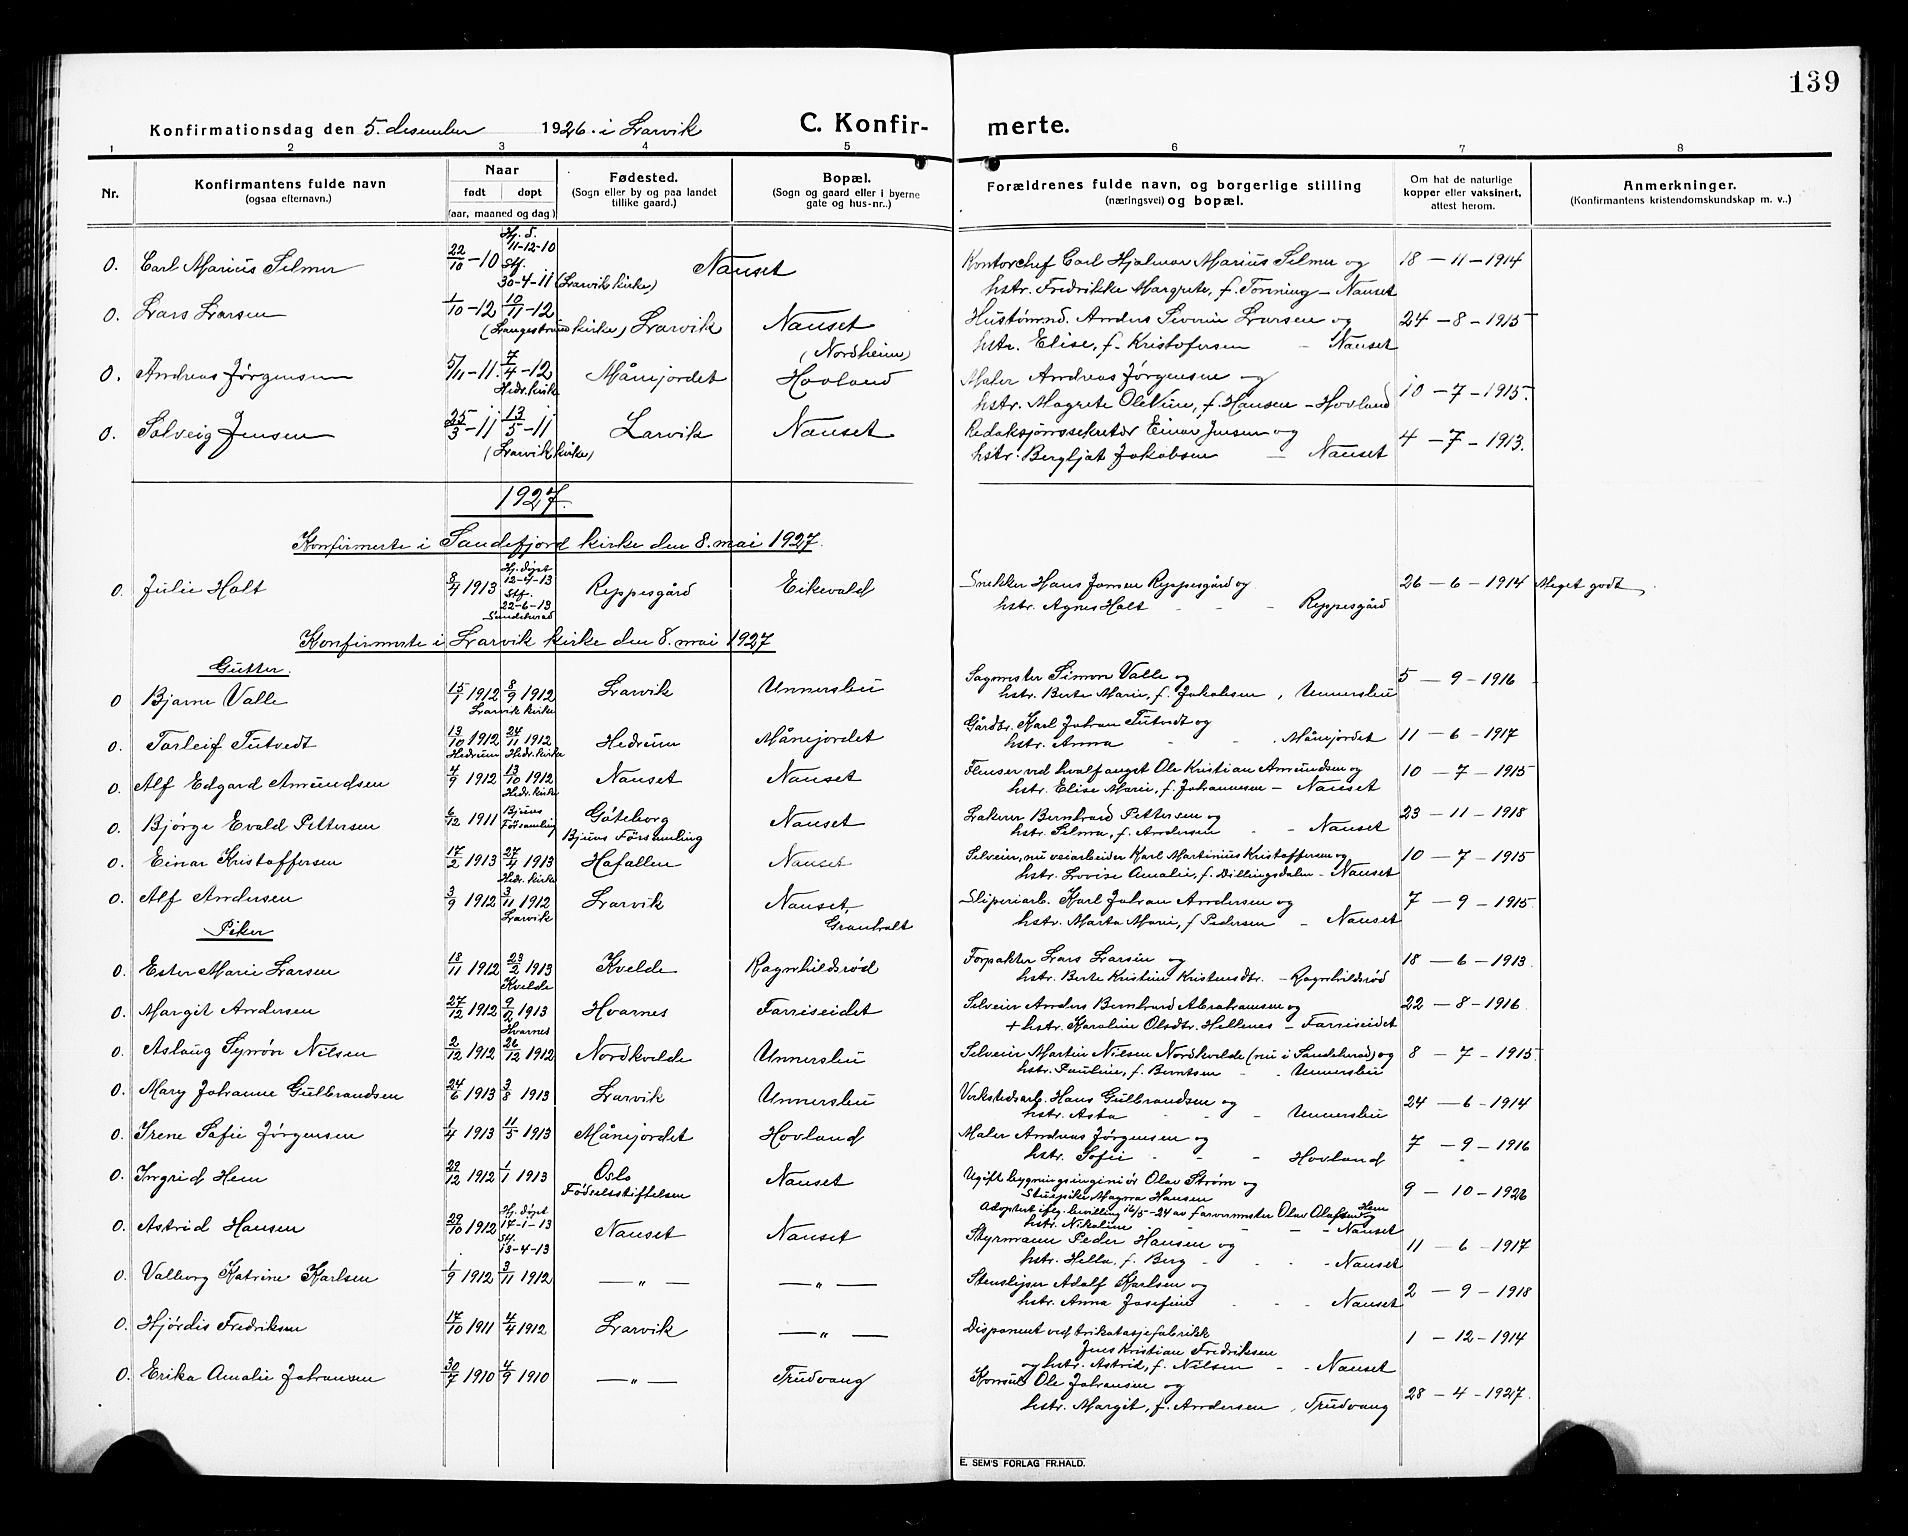 139
Konfirmationsdag den 5. desember 1926 i Larvik C. Konfir- merte.
1 2 3 4 5 6 7 8
Nr. Konfirmantens fulde navn (ogsaa efternavn.) Naar født døpt (aar, maaned og dag) Fødested. (Sogn eller by og paa landet tillike gaard.) Bopæl. (Sogn og gaard eller i byerne gate og hus-nr..) Forældrenes fulde navn, og borgerlige stilling (næringsvei) og bopæl. Om hat de naturlige kopper eller vaksinert, attest herom. Anmerkninger. (Konfirmantens kristendomskundskap m. v..)
0. Carl Marius Selmer 22/10-10 Hj. d. 11-12-10 Stf. 30-4-11 (Larvik kirke) Nanset Kontorchef Carl Hjalmar Marius Selmer og 18-11-1914
hstr. Fredrikke Margrete, f. Tønning - Nanset
0. Lars Larsen 1/10-12 10/11-12 (Langestrand kirke) Larvik Nanset (Nordheim) Hustømnd. Anders Severin Larsen og 24-8-1915
hstr. Elise, f. Kristofersen - Nanset
0. Andreas Jørgensen 5/11-11. 7/4-12 Hedr. kirke Månejordet Hovland Maler Andreas Jørgensen og 10-7-1915.
hstr. Magrete Oleline, f. Hansen - Hovland
0. Solveig Jensen 25/3-11 13/5-11 (Larvik kirke) Larvik Nanset Redaksjonssekretær Einar Jensen og 4-7-1913.
hstr. Bergljot Jakobsen - Nanset
1927.
Konfirmerte i Sandefjord kirke den 8. mai 1927.
0. Julie Holt 8/4 1913 Hj. døpt 12-4-13 Stf. 22-6-13 Sandeherad Reppesgård Eikevald Snekker Hans Jansen Reppesgård og 26-6-1914 Meget godt
hstr. Agnes Holt - - - Reppesgård
Konfirmerte i Larvik kirke den 8. mai 1927
Gutter.
0 Bjarne Valle 15/7 1912 8/9 1912 Larvik kirke Larvik Unnersbu Sagmester Simon Valle og 5-9-1916
hstr. Berte Marie, f. Jakobsen, Unnersbu
0. Torleif Tutvedt 13/10 1912 Hedrum 24/11 1912 Hedr. kirke Hedrum Månejordet Gårdbr. Karl Johan Tutvedt og 11-6-1917
hstr. Anna - . Månejordet
0. Alf Edgard Amundsen 4/9 1912 13/10 1912 Hedr. kirke Nanset Nanset Flenser ved hvalfangst Ole Kristian Amundsen og 10-7-1915
hstr. Elise Marie, f. Johannesen - Nanset
0. Bjørge Evald Pettersen 6/12 1911 Bjuns Församling Göteborg Bjuns Församling Nanset Lakerer Bernhard Pettersen og 23-11-1918
hstr. Selma, f. Andersen - - Nanset
0. Einar Kristoffersen 17/2 1913 27/4 1913 Hedr. kirke Hafallen Nanset Selveier, nu veiarbeider Karl Martinius Kristoffersen og 10-7-1915
hstr. Lovise Amalie, f. Dillingsdalen - Nanset
0. Alf Andersen 3/9 1912 3/11 1912 Larvik Larvik Nanset, Granholt Sliperiarb. Karl Johan Andersen og 7-9-1915.
hstr. Marta Marie, f Pedersen - Nanset
Piker
0. Ester Marie Larsen 18/11 1912 23/2 1913 Kvelde Kvelde Ragnhildsrød Forpakter Lars Larsen og 18-6-1913
hstr. Berte Kristine Kristensdtr. - Ragnhildsrød
0. Margit Andersen 27/12 1912 9/2 1913 Hvarnes Hvarnes Farriseidet Selveier Anders Bernhard Abrahamsen og 22-8-1916.
+ hstr. Karoline Olsdtr. Hellenes - Farriseidet
0. Aslaug Synøv Nilsen 2/12 1912 26/12 1912 Nordkvelde Unnersbu Selveier Martin Nilsen Nordkvelde (nu i Sandeherad) og 8-7-1915
hstr. Pauline, f. Berntsen - . Unnersbu
0. Mary Johanne Gulbrandsen 24/6 1913 3/8 1913 Larvik Unnersbu Verkstedsarb. Hans Gulbrandsen og 24-6-1914
hstr. Asta - - - Unnersbu
0. Irene Sofie Jørgensen 1/4 1913 11/5 1913 Månejordet Hovland Maler Andreas Jørgensen og 7-9-1916
hstr. Sofie - - - Hovland
0. Ingrid Hem 22/12 1912 1/1 1913 Oslo Födselsstiftelsen Nanset Ugift bygningsingeniör Olav Strøm og 9-10-1926
Stuepike Magna Hansen
Adoptert iflg. bevilling 16/5-24 av farvermester Olav Olafsen Hem og
hstr. Nikoline - - - Nanset
0. Astrid Hansen 29/10 1912 Hj. døpt 17-1-13 Stf. 13-4-13 Nanset Nanset Styrmann Peder Hansen og 11-6-1917
hstr. Hella, f. Berg - - - Nanset
0. Valborg Katrine Karlsen 1/9 1912 3/11 1912 — " — — " — Stensliper Adolf Karlsen og 2-9-1918
hstr. Anna Josefine - - Nanset
0. Hjørdis Fredriksen 17/10 1911 4/4 1912 Larvik — " — Disponent ved trikotasjefabrikk 1-12-1914
Jens Kristian Fredriksen
og hstr. Astrid, f. Nilsen - - Nanset
0. Erika Amalie Johansen 30/7 1910 4/9 1910 — " — Trudvang Konsul Ole Johansen og 28-4-1927.
hstr. Margit, f. Andersen, Trudvang
E. SEM'S FORLAG FR.HALD.